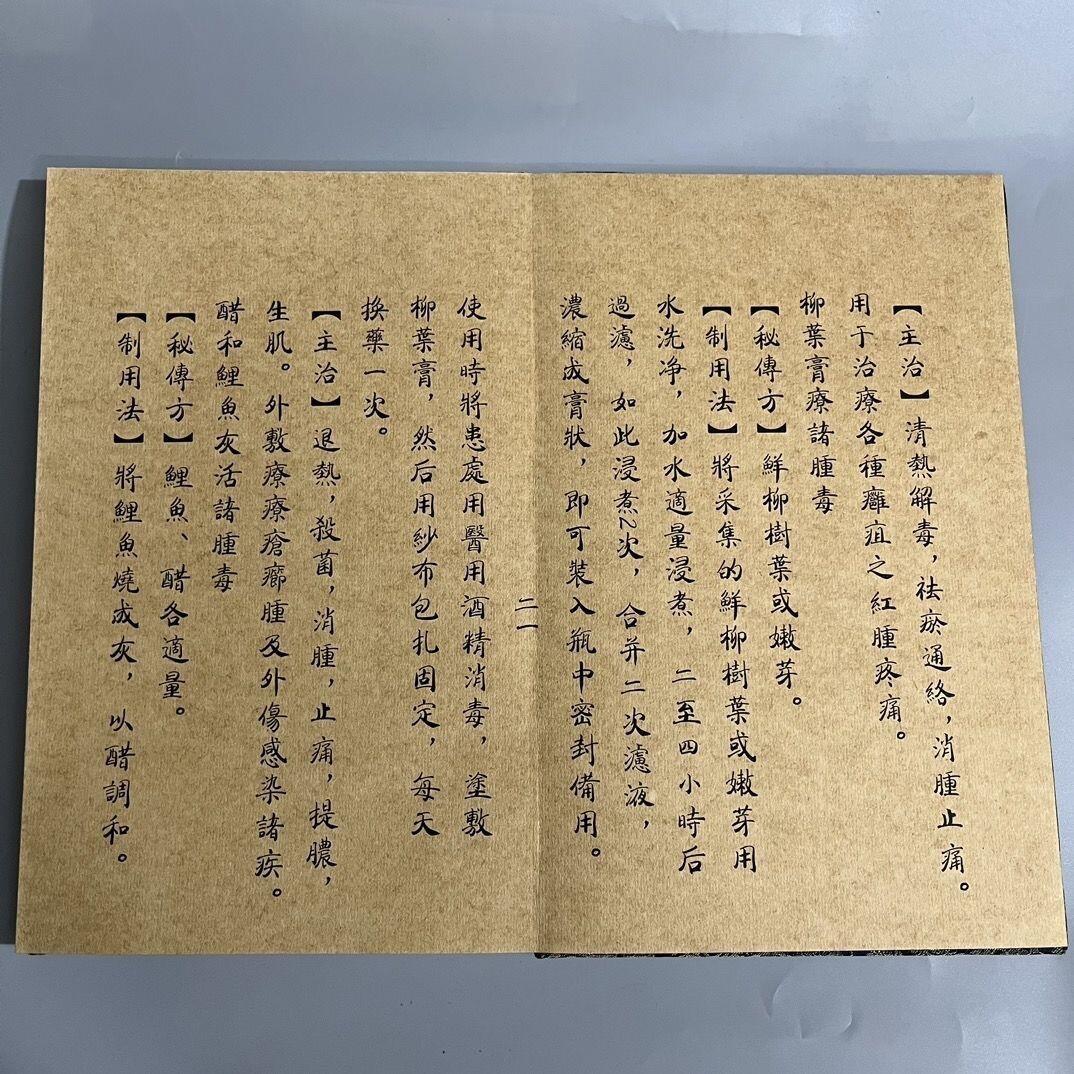 【主治】清熱解毒，祛瘀通絡，消腫止痛。
用于治療各種癰疽之紅腫疼痛。
柳葉膏療諸腫毒
【秘傳方】鮮柳樹葉或嫩芽。
【制用法】將采集的鮮柳樹葉或嫩芽用
水洗净，加水適量浸煮，二至四小時后
過濾，如此浸煮2次，合并二次濾液，
濃縮成膏狀，即可裝入瓶中密封備用。
二一
使用時將患處用醫用酒精消毒，塗敷
柳葉膏，然后用紗布包扎固定，每天
換藥一次。
【主治】退熱，殺菌，消腫，止痛，提膿，
生肌。外敷療療瘡癤腫及外傷感染諸疾。
醋和鯉魚灰活諸腫毒
【秘傳方】鯉魚、醋各適量。
【制用法】將鯉魚燒成灰，以醋調和。